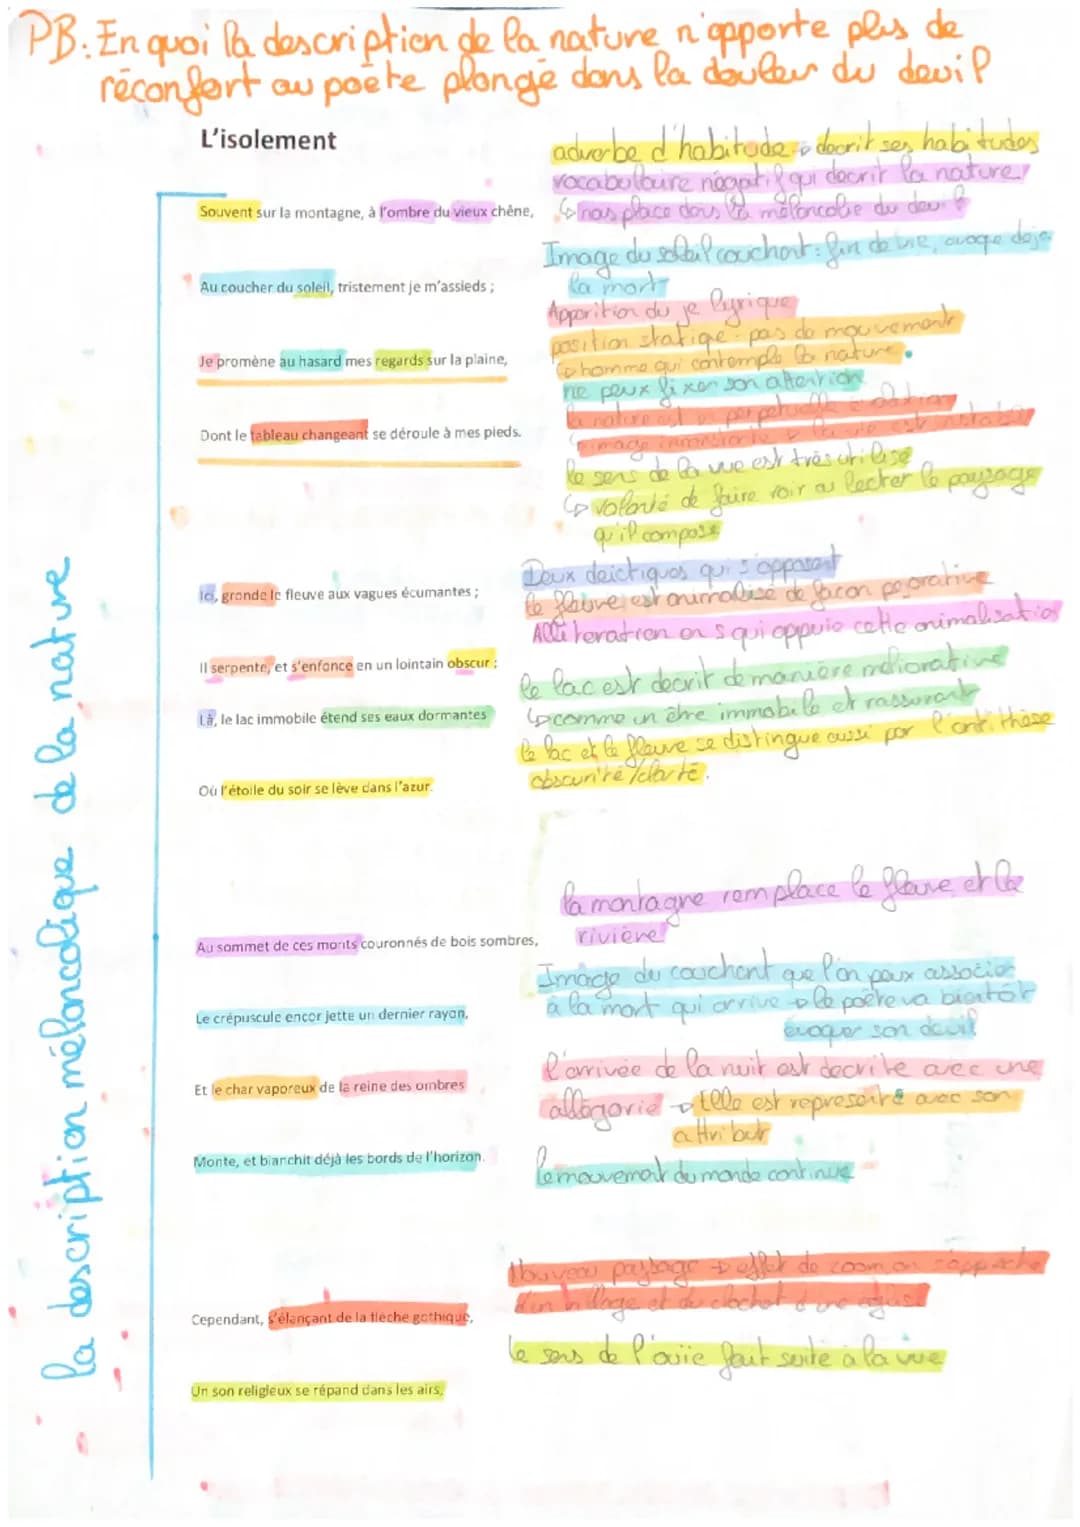 PB: En quoi la description de la nature n'apporte plus de
réconfort au poète plongé dans la douleur du deuil
L'isolement
adverbe d'habitude → decrit ses habitudes
vocabulaire négatif qui decrit la nature
Souvent sur la montagne, à l'ombre du vieux chêne,
↳ nous place dans la mélancolie du deuil
Image du soleil couchant : fin de vie, evoque deja
la mort
Au coucher du soleil, tristement je m'assieds ;
Apparition du je lyrique
position statique : pas de mouvement
↳ homme qui contemple la nature.
Je promène au hasard mes regards sur la plaine,
ne peux fixer son attention
la nature est en perpetuelle évolution
Dont le tableau changeant se déroule à mes pieds.
↳ image la vie est instable
le sens de la vue est très utilisé
↳ volonté de faire voir au lecter le paysage
qu'il compose
Deux deictiques qui s'opposent
Ici, gronde le fleuve aux vagues écumantes ;
le fleuve est animalisé de façon pejorative
Alliteration en s qui appuie cette animalisation
Il serpente, et s'enfonce en un lointain obscur ;
le lac est decrit de manière méliorative
↳ comme un être immobile et rassurant
Là, le lac immobile étend ses eaux dormantes
le lac et le fleuve se distingue aussi par l'antithèse
obscurité/clarté.
Où l'étoile du soir se lève dans l'azur.
la montagne remplace le fleuve et la
rivière
Au sommet de ces monts couronnés de bois sombres,
Image du couchant que l'on peux associer
à la mort qui arrive → le poète va bientôt
évoquer son deuil
Le crépuscule encor jette un dernier rayon,
l'arrivée de la nuit est decrite avec une
allégorie → elle est representé avec son
attribut
Et le char vaporeux de la reine des ombres
Monte, et blanchit déjà les bords de l'horizon.
le mouvement du monde continue
Nouveau paysage → effet de zoom on rapproche
d'un village et du clochet d'une eglise
Cependant, s'élançant de la flèche gothique,
le sens de l'ouïe fait suite à la vue
Un son religieux se répand dans les airs,
la description mélancolique de la nature